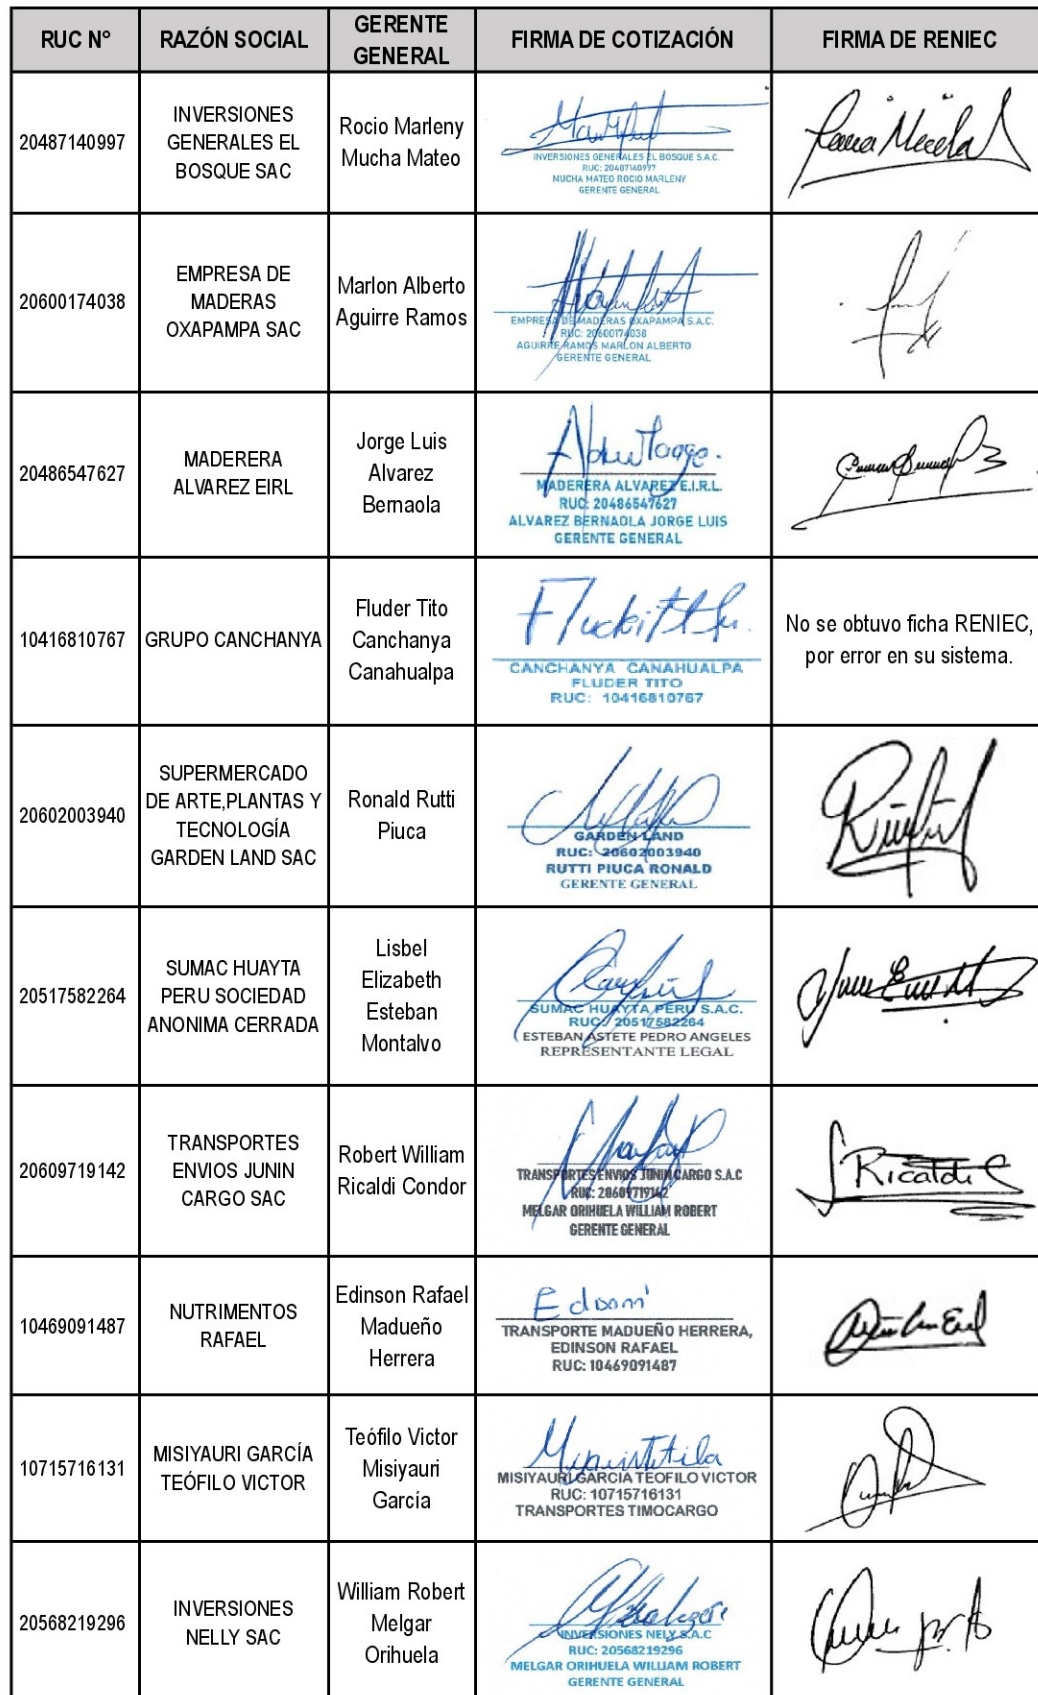 RUC N°
RAZÓN SOCIAL
GERENTE
GENERAL
FIRMA DE COTIZACIÓN
FIRMA DE RENIEC
20487140997
INVERSIONES
GENERALES EL
BOSQUE SAC
Rocio Marleny
Mucha Mateo
INVERSIONES GENERALES EL BOSQUE S.A.C.
RUC: 20487140997
MUCHA MATEO ROCIO MARLENY
GERENTE GENERAL
20600174038
EMPRESA DE
MADERAS
OXAPAMPA SAC
Marlon Alberto
Aguirre Ramos
EMPRESA DE MADERAS OXAPAMPA S.A.C.
RUC: 20600174038
AGUIRRE RAMOS MARLON ALBERTO
GERENTE GENERAL
20486547627
MADERERA
ALVAREZ EIRL
Jorge Luis
Alvarez
Bernaola
MADERERA ALVAREZ E.I.R.L.
RUC: 20486547627
ALVAREZ BERNAOLA JORGE LUIS
GERENTE GENERAL
10416810767
GRUPO CANCHANYA
Fluder Tito
Canchanya
Canahualpa
CANCHANYA CANAHUALPA
FLUDER TITO
RUC: 10416810767
No se obtuvo ficha RENIEC,
por error en su sistema.
20602003940
SUPERMERCADO
DE ARTE,PLANTAS Y
TECNOLOGÍA
GARDEN LAND SAC
Ronald Rutti
Piuca
GARDEN LAND
RUC: 20602003940
RUTTI PIUCA RONALD
GERENTE GENERAL
20517582264
SUMAC HUAYTA
PERU SOCIEDAD
ANONIMA CERRADA
Lisbel
Elizabeth
Esteban
Montalvo
SUMAC HUAYTA PERU S.A.C.
RUC: 20517582264
ESTEBAN ASTETE PEDRO ANGELES
REPRESENTANTE LEGAL
20609719142
TRANSPORTES
ENVIOS JUNIN
CARGO SAC
Robert William
Ricaldi Condor
TRANSPORTES ENVIOS JUNIN CARGO S.A.C
RUC: 20609719142
MELGAR ORIHUELA WILLIAM ROBERT
GERENTE GENERAL
Ricaldi C
10469091487
NUTRIMENTOS
RAFAEL
Edinson Rafael
Madueño
Herrera
TRANSPORTE MADUEÑO HERRERA,
EDINSON RAFAEL
RUC: 10469091487
10715716131
MISIYAURI GARCÍA
TEÓFILO VICTOR
Teófilo Victor
Misiyauri
García
MISIYAURI GARCIA TEOFILO VICTOR
RUC: 10715716131
TRANSPORTES TIMOCARGO
20568219296
INVERSIONES
NELLY SAC
William Robert
Melgar
Orihuela
INVERSIONES NELY S.A.C
RUC: 20568219296
MELGAR ORIHUELA WILLIAM ROBERT
GERENTE GENERAL